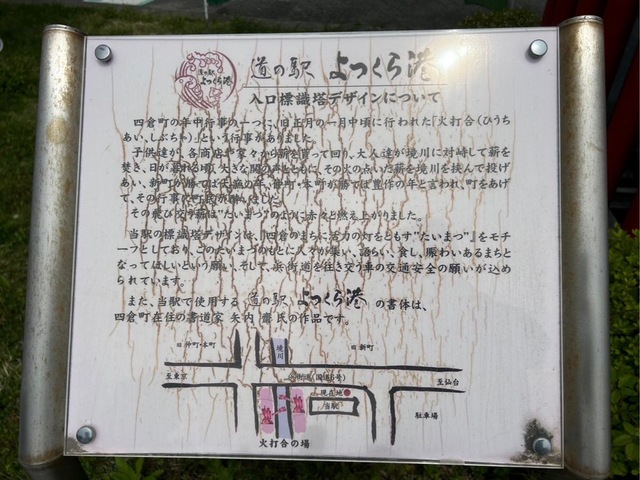 道の駅 よつくら港
道の駅 よつくら港
入口標識塔デザインについて
四倉町の年中行事の一つに、旧正月の一月中頃に行われた「火打合(ひうち
あい、しぶちゃ)」という行事がありました。
子供達が、各商店や家々から薪を貰って回り、大人達が境川に対峙して薪を
焚き、日が暮れる頃、大きな鬨の声とともに、その火のついた薪を境川を挟んで投げ
あい、新町が勝てば大漁の年、仲町・本町が勝てば豊作の年と言われ、町をあげ
て、その行事に
その飛び交う薪は"たいまつ"のように赤々と燃え上がりました。
当駅の標識塔デザインは、『四倉のまちに活力の灯をともす"たいまつ"』をモチ
ーフとしており、このたいまつのもとに人々が集い、語らい、食し、賑わいあるまちと
なってほしいという願い、そして、浜街道を往き交う車の交通安全の願いが込め
られています。
また、当駅で使用する 道の駅 よつくら港 の書体は、
四倉町在住の書道家 矢内 齋氏の作品です。
旧仲町・本町
境川
旧新町
至東京
浜街道(国道6号)
至仙台
現在地
当駅
駐車場
火打合の場